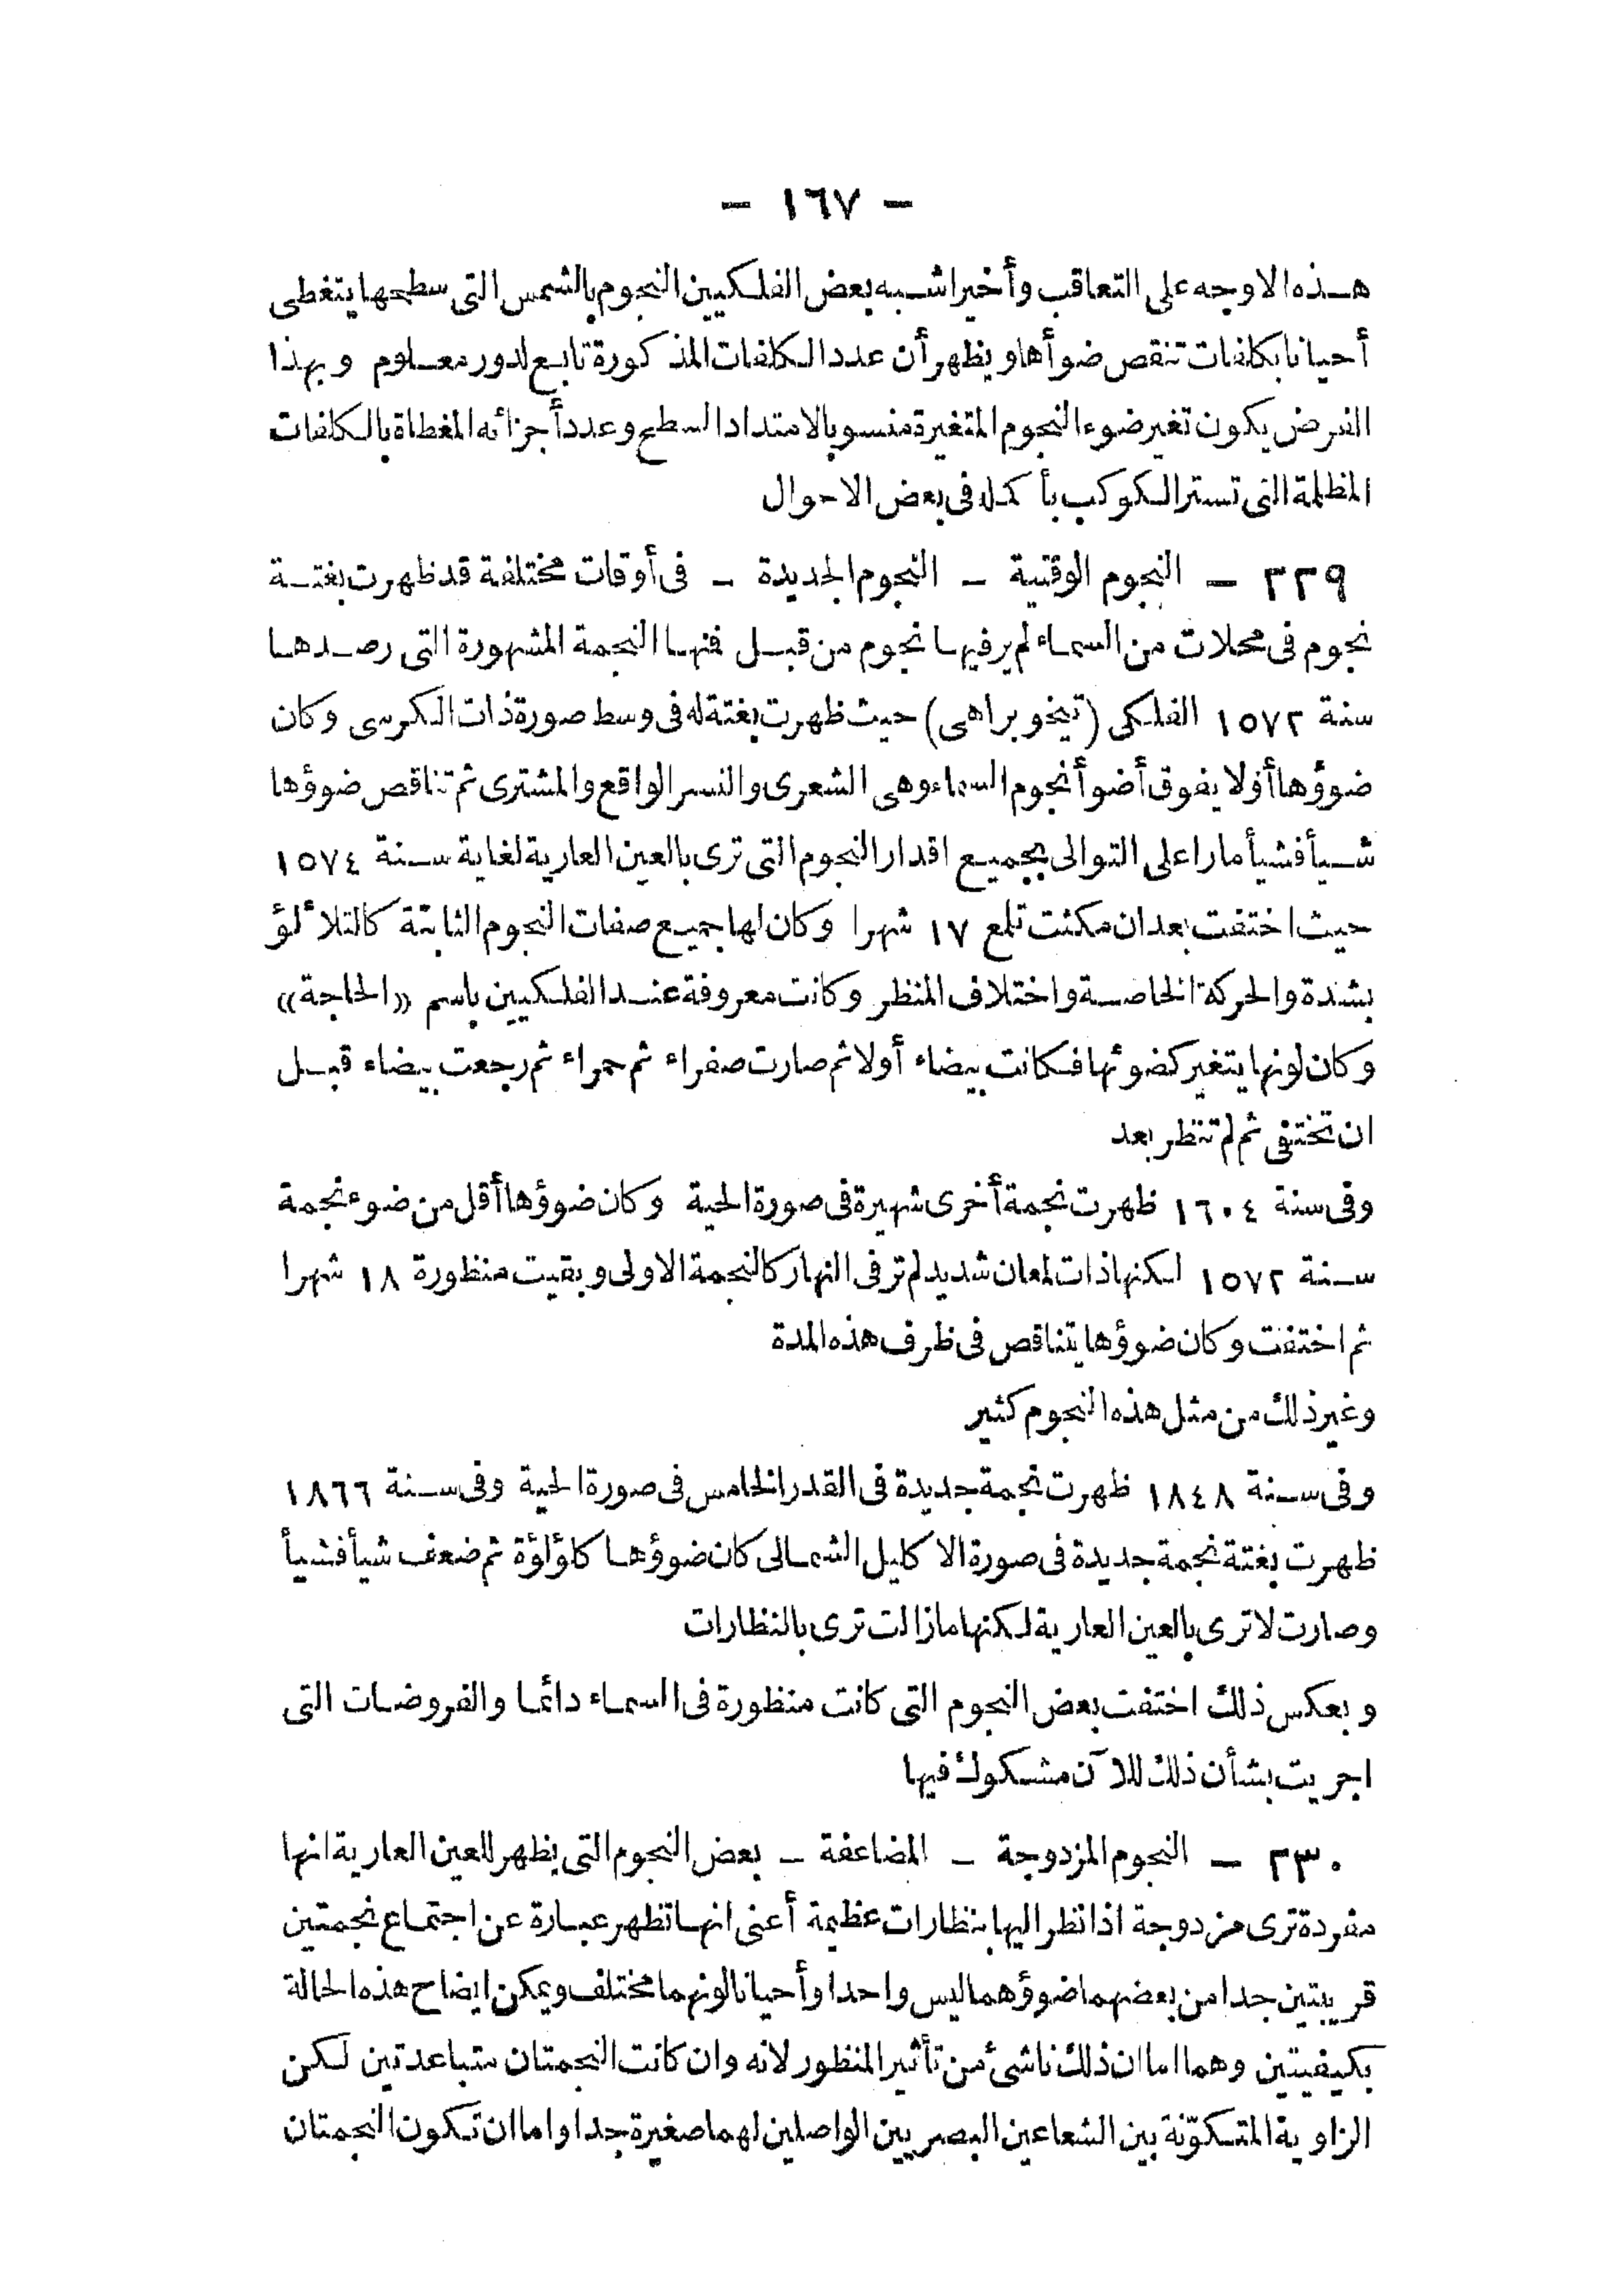 - ١٦٧ -
هذه الاوجه على التعاقب وأخيرا شبه بعض الفلكيين النجوم بالشمس التى سطحها يتغطى
أحيانا بكلفات تنقص ضوأها ويظهر أن عدد الكلفات المذكورة تابع لدور معلوم وبهذا
الفرض يكون تغير ضوء النجوم المتغيرة منسوبا لامتداد السطح وعدد أجزائه المغطاة بالكلفات
المظلمة التى تستر الكوكب بأكمله فى بعض الاحوال
٢٢٩ - النجوم الوقتية - النجوم الجديدة - فى أوقات مختلفة قد ظهرت بغتة
نجوم فى محلات من السماء لم ير فيها نجوم من قبل فنها النجمة المشهورة التى رصدها
سنة ١٥٧٢ الفلكى (تيخو براهى) حيث ظهرت بغتة له فى وسط صورة ذات الكرسى وكان
ضوؤها أولا يفوق أضوأ نجوم السماء وهى الشعرى والنسر الواقع والمشترى ثم تناقص ضوؤها
شيأ فشيأ مارا على التوالى بجميع اقدار النجوم التى ترى بالعين العارية لغاية سنة ١٥٧٤
حيث اختفت بعد ان مكثت تلمع ١٧ شهرا وكان لها جميع صفات النجوم الثابتة كالتلألؤ
بشدة والحركة الخاصة واختلاف المنظر وكانت معروفة عند الفلكيين باسم ((الحاجة))
وكان لونها يتغير كضوئها فكانت بيضاء أولا ثم صارت صفراء ثم حمراء ثم رجعت بيضاء قبل
ان تختفى ثم لم تنظر بعد
وفى سنة ١٦٠٤ ظهرت نجمة أخرى شهيرة فى صورة الحية وكان ضوؤها أقل من ضوء نجمة
سنة ١٥٧٢ لكنها ذات لمعان شديد لم تر فى النهار كالنجمة الاولى وبقيت منظورة ١٨ شهرا
ثم اختفت وكان ضوؤها يتناقص فى ظرف هذه المدة
وغير ذلك من مثل هذه النجوم كثير
وفى سنة ١٨٤٨ ظهرت نجمة جديدة فى القدر الخامس فى صورة الحية وفى سنة ١٨٦٦
ظهرت بغتة نجمة جديدة فى صورة الاكليل الشمالى كان ضوؤها كلؤلؤة ثم ضعف شيأ فشيأ
وصارت لا ترى بالعين العارية لكنها مازالت ترى بالنظارات
وبعكس ذلك اختفت بعض النجوم التى كانت منظورة فى السماء دائما والفروضات التى
اجريت بشأن ذلك للآن مشكوك فيها
٢٣٠ - النجوم المزدوجة - المضاعفة - بعض النجوم التى يظهر للعين العارية انها
مفردة ترى مزدوجة اذا نظر اليها بنظارات عظيمة أعنى انها تظهر عبارة عن اجتماع نجمتين
قريبتين جدا من بعضهما ضوؤهما ليس واحدا وأحيانا لونهما مختلف ويمكن ايضاح هذه الحالة
بكيفيتين وهما اما ان ذلك ناشئ من تأثير المنظور لانه وان كانت النجمتان متباعدتين لكن
الزاوية المتكوّنة بين الشعاعين البصريين الواصلين لهما صغيرة جدا واما ان تكون النجمتان